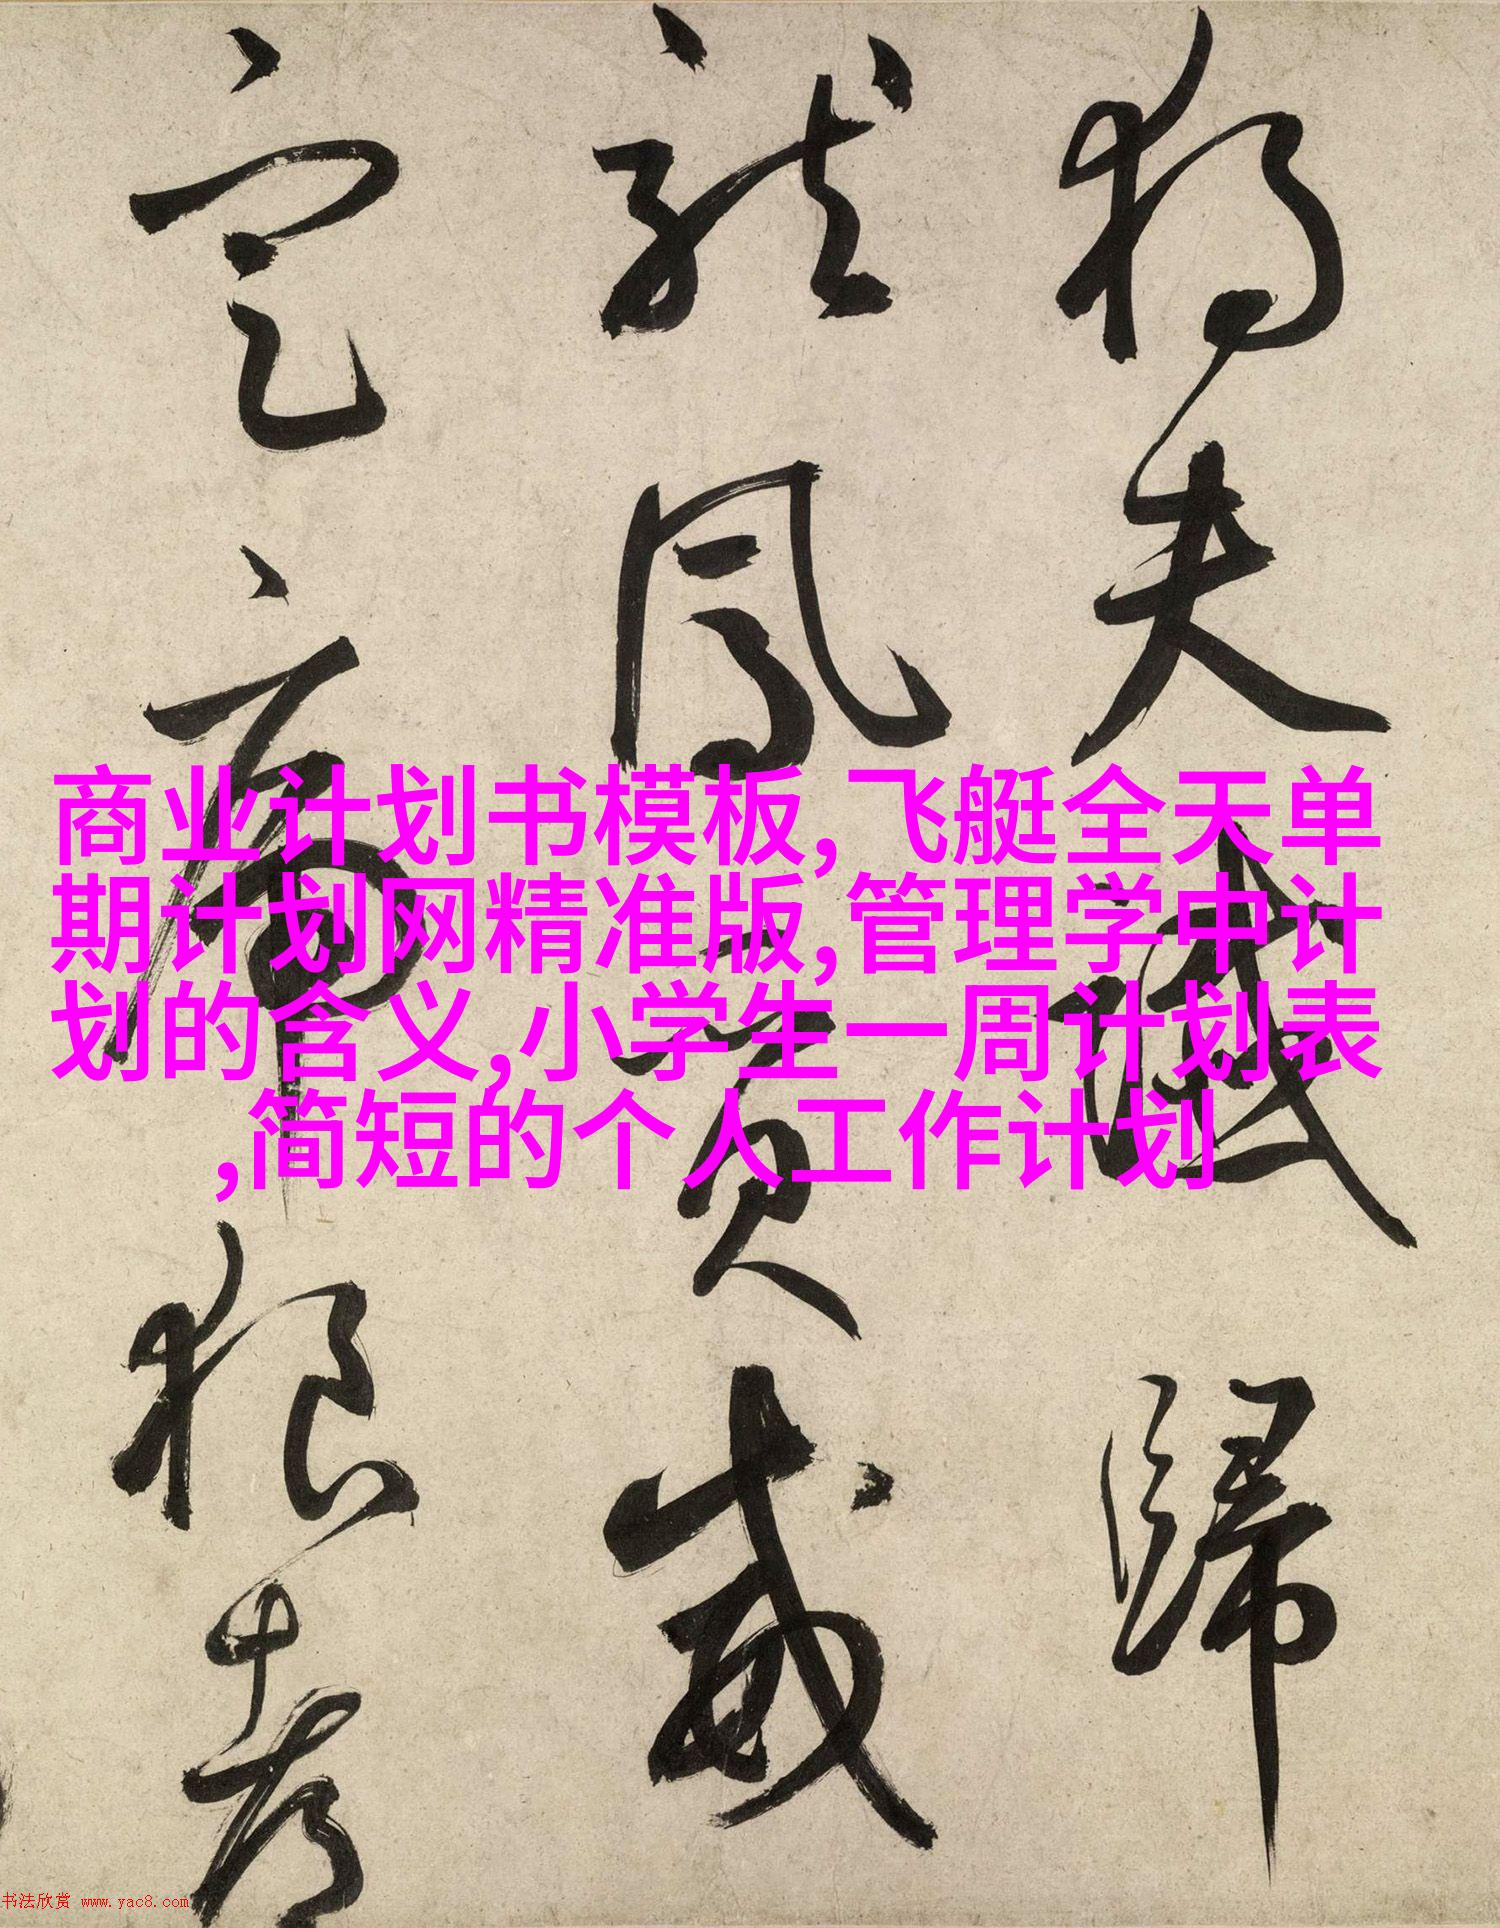 独夫贼归
龙凤贡威
定高狼考
商业计划书模板,飞艇全天单
期计划网精准版,管理学中计
划的含义,小学生一周计划表
,简短的个人工作计划
书法欣赏 www.yac8.com